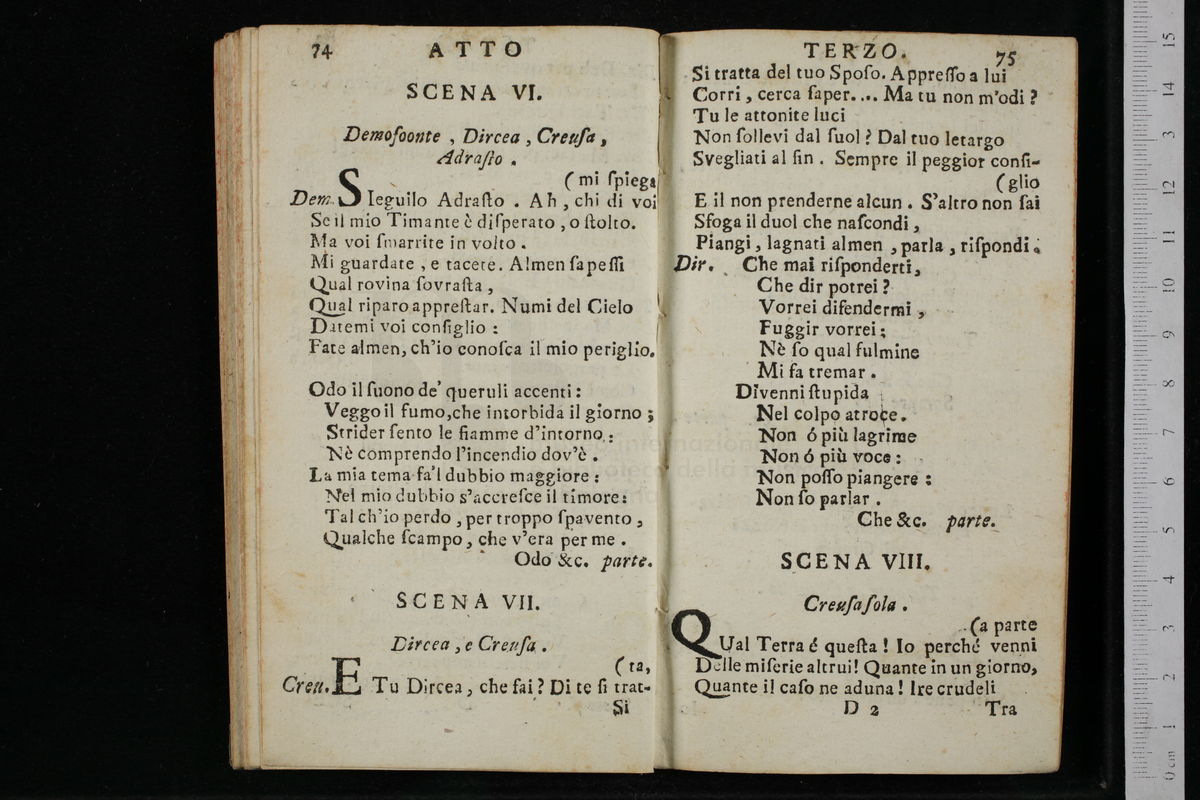 74 ATTO
SCENA VI.
Demofoonte , Dircea , Creuſa ,
Adraſto .
( mi ſpiega
Dem. SIeguilo Adraſto . Ah , chi di voi
Se il mio Timante è diſperato , o ſtolto.
Ma voi ſmarrite in volto .
Mi guardate , e tacete. Almen ſapeſſi
Qual rovina ſovraſta ,
Qual riparo appreſtar. Numi del Cielo
Datemi voi conſiglio :
Fate almen, ch'io conoſca il mio periglio.
Odo il ſuono de' queruli accenti :
Veggo il fumo,che intorbida il giorno ;
Strider ſento le fiamme d'intorno :
Nè comprendo l'incendio dov'è .
La mia tema fa'l dubbio maggiore :
Nel mio dubbio s'accreſce il timore:
Tal ch'io perdo , per troppo ſpavento ,
Qualche ſcampo, che v'era per me .
Odo &c. parte.
SCENA VII.
Dircea , e Creuſa .
( ta,
Creu. E Tu Dircea , che fai ? Di te ſi trat-
Si
TERZO. 75
Si tratta del tuo Spoſo. Appreſſo a lui
Corri , cerca ſaper.... Ma tu non m'odi ?
Tu le attonite luci
Non ſollevi dal ſuol ? Dal tuo letargo
Svegliati al fin . Sempre il peggior conſi-
(glio
E il non prenderne alcun . S'altro non ſai
Sfoga il duol che naſcondi ,
Piangi , lagnati almen , parla , riſpondi .
Dir. Che mai riſponderti,
Che dir potrei ?
Vorrei difendermi ,
Fuggir vorrei ;
Nè ſo qual fulmine
Mi fa tremar .
Divenni ſtupida
Nel colpo atroce .
Non ó più lagrime
Non ó più voce :
Non poſſo piangere ;
Non ſo parlar .
Che &c. parte.
SCENA VIII.
Creuſa ſola .
(a parte
QUal Terra é queſta ! Io perché venni
Delle miſerie altrui! Quante in un giorno,
Quante il caſo ne aduna ! Ire crudeli
D 2 Tra
15
14
13
12
11
10
9
8
7
6
5
4
3
2
1
0 cm